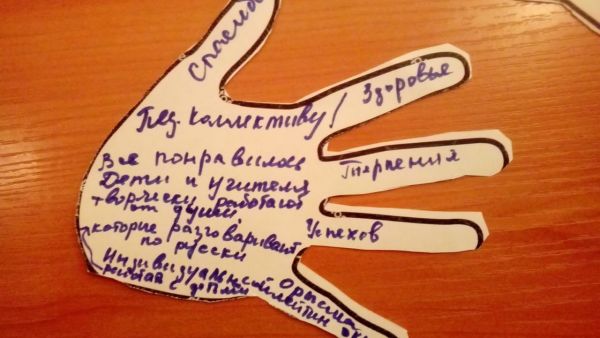 Спасибо
Пед. Коллективу!
Здоровья
Терпения
Успехов
Все понравилось
Дети и учителя
творчески работают
от души,
которые разговаривают
по русски
Индивидуальная
работа с